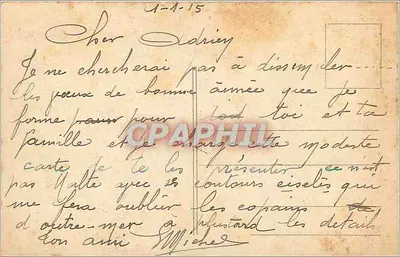 1-1-15
Cher Adrien
Je ne chercherai pas à dissem
les vœux de bonne année que je
forme pour toi et ta
famille et je charge cette modeste
carte de te les présenter ce n'est
pas avec contours ciselés qui
me fera oublier les copains
d'outre-mer à plustard les details
ton ami Michel
CPAPHIL